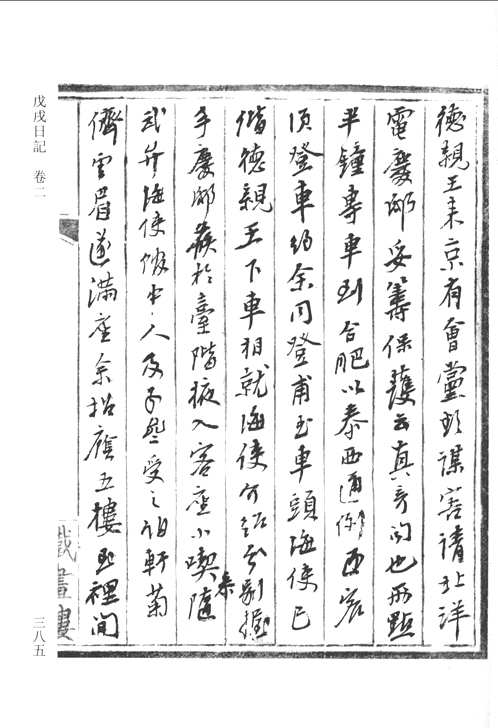 德親王來京有會黨欲謀害請北洋
電慶邸妥籌保護云真奇聞也兩點
半鐘專車到合肥以泰西通例西賓
須登車約余同登甫至車頭海使已
偕德親王下車相就海使介紹分別握
手慶邸候於臺階掖入客座小喫隨
來
武弁海使偕中人及予與受之相軒菊
儕雲眉遂滿座余招應五樓至裡間
戊戌日記 卷二
三八五
戩書樓